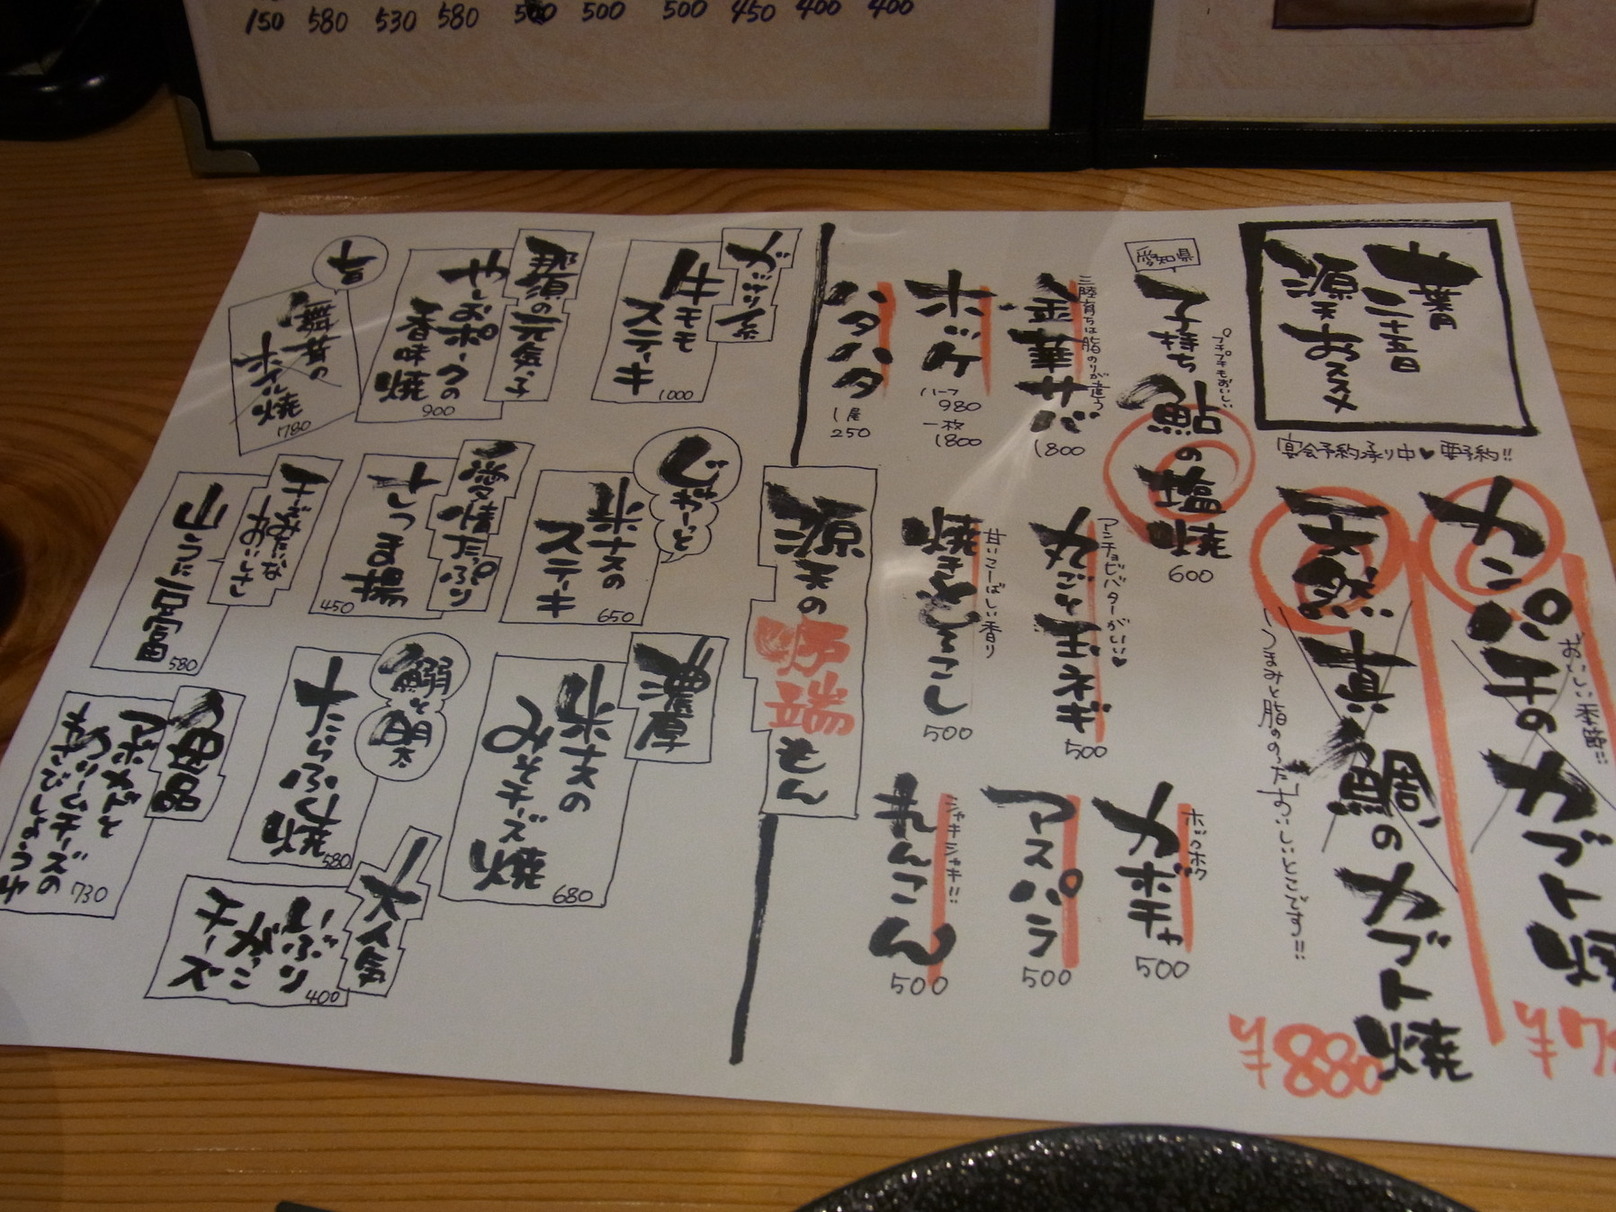 150 580 530 580 500 500 500 450 400 400
葉月
二十五日
源天おススメ
宴会予約承り中♥要予約!!
カンパチのカブト焼
おいしい季節!!
天然真鯛のカブト焼
880
愛知県
子持ち鮎の塩焼
プチプチもおいしい
600
三陸育ちは脂のりが違う
金華サバ
1800
ホッケ
ハーフ
980
一枚
1800
ハタハタ
1尾
250
アンチョビバターがいい♥
丸ごと玉ネギ
500
甘いこーばしい香り
焼きとうもろこし
500
ホックホク
カボチャ
500
アスパラ
500
シャキシャキ!!
れんこん
500
源天の
炉端
もん
ガッツリ系
牛モモ
ステーキ
1000
那須の元気な子
やしおポークの
香味焼
900
舞茸の
ホイル焼
780
じゅわーっと
茄子の
ステーキ
650
愛情たっぷり
さつま揚
450
580
濃厚
茄子の
みそチーズ焼
680
580
アボカドと
クリームチーズの
わさびしょうゆ
730
大人気
いぶり
がっこ
チーズ
400